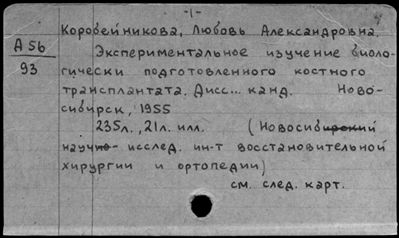 -1-
Коробейникова, Любовь Александровна.
А 56
93
Экспериментальное изучение биоло-
гически подготовленного костного
трансплантата. Дисс... канд. Ново-
сибирск, 1955
235л., 21л. илл. (Новосибирский
научно- исслед. ин-т восстановительной
хирургии и ортопедии)
см. след. карт.